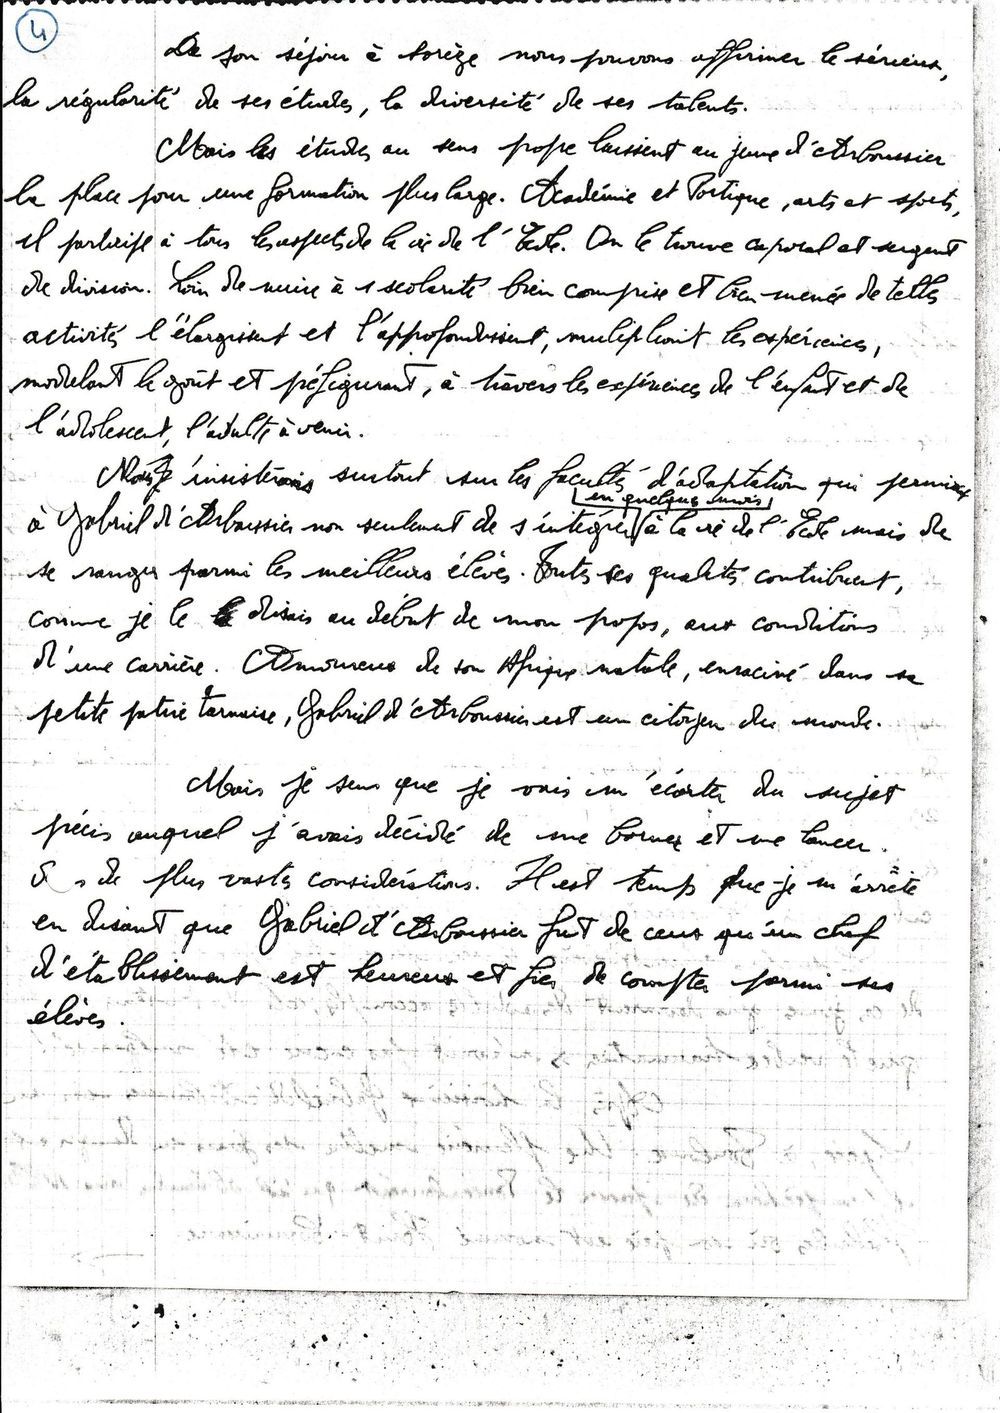 4
De son séjour à Sorèze nous pouvons affirmer le sérieux,
la régularité de ses études, la diversité de ses talents.
Mais les études au sens propre laissent au jeune d'Arboussier
la place pour une formation plus large. Académie et Portique, arts et sports,
il participe à tous les aspects de la vie de l'Ecole. On le trouve caporal et sergent
de division. Loin de nuire à 1 scolarité bien comprise et bien menée de telles
activités l'élargissent et l'approfondissent, multipliant les expériences,
modelant le goût et préfigurant, à travers les expériences de l'enfant et de
l'adolescent, l'adulte à venir.
insisterons surtout sur les facultés d'adaptation qui permirent
en quelques mois
à Gabriel d'Arboussier non seulement de s'intégrer à la vie de l'Ecole mais de
se ranger parmi les meilleurs élèves. Toutes ses qualités contribuent,
comme je le disais au début de mon propos, aux conditions
d'une carrière. Amoureux de son Afrique natale, enraciné dans sa
petite patrie tarnaise, Gabriel d'Arboussier est un citoyen du monde.
Mais je sens que je vais m'écarter du sujet
précis auquel j'avais décidé de me borner et me lancer
de plus vastes considérations. Il est temps que je m'arrête
en disant que Gabriel d'Arboussier fut de ceux qu'un chef
d'établissement est heureux et fier de compter parmi ses
élèves.